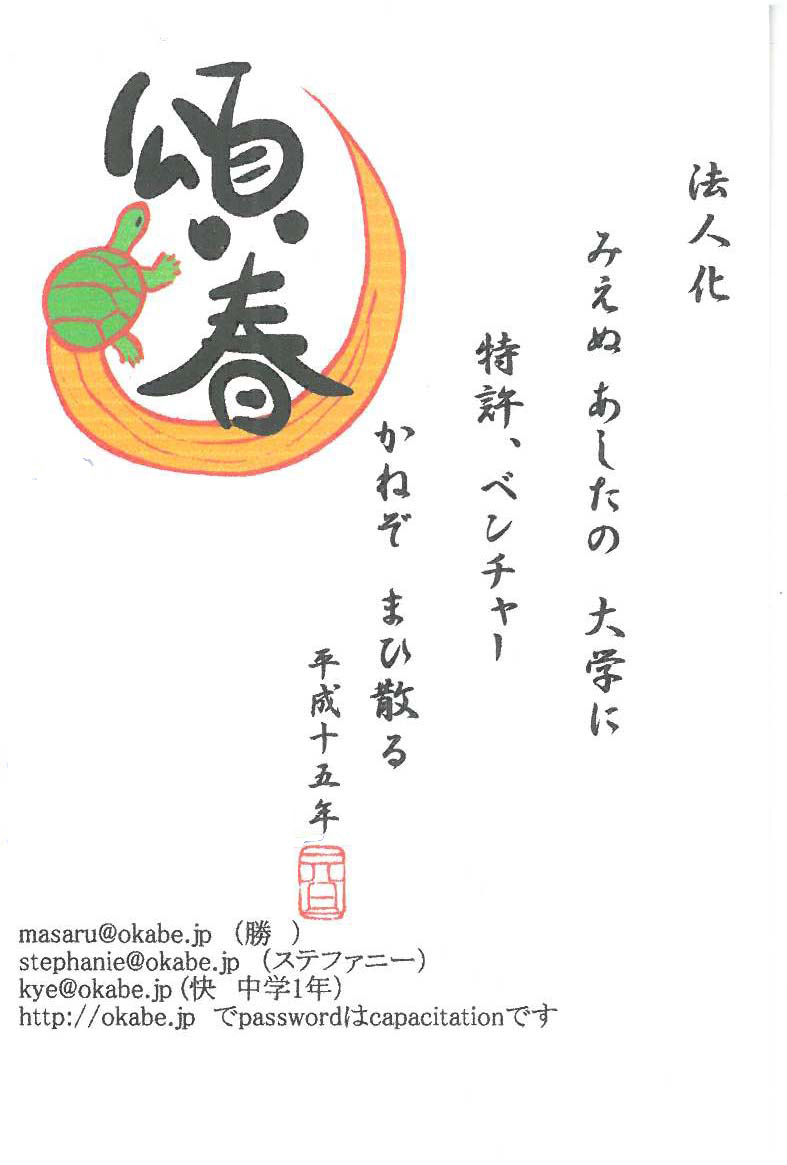 頌春
法人化
みえぬ あしたの 大学に
特許、ベンチャー
かねぞ まひ散る
平成十五年
masaru@okabe.jp （勝　）
stephanie@okabe.jp （ステファニー）
kye@okabe.jp (快　中学1年）
http://okabe.jp でpasswordはcapacitationです